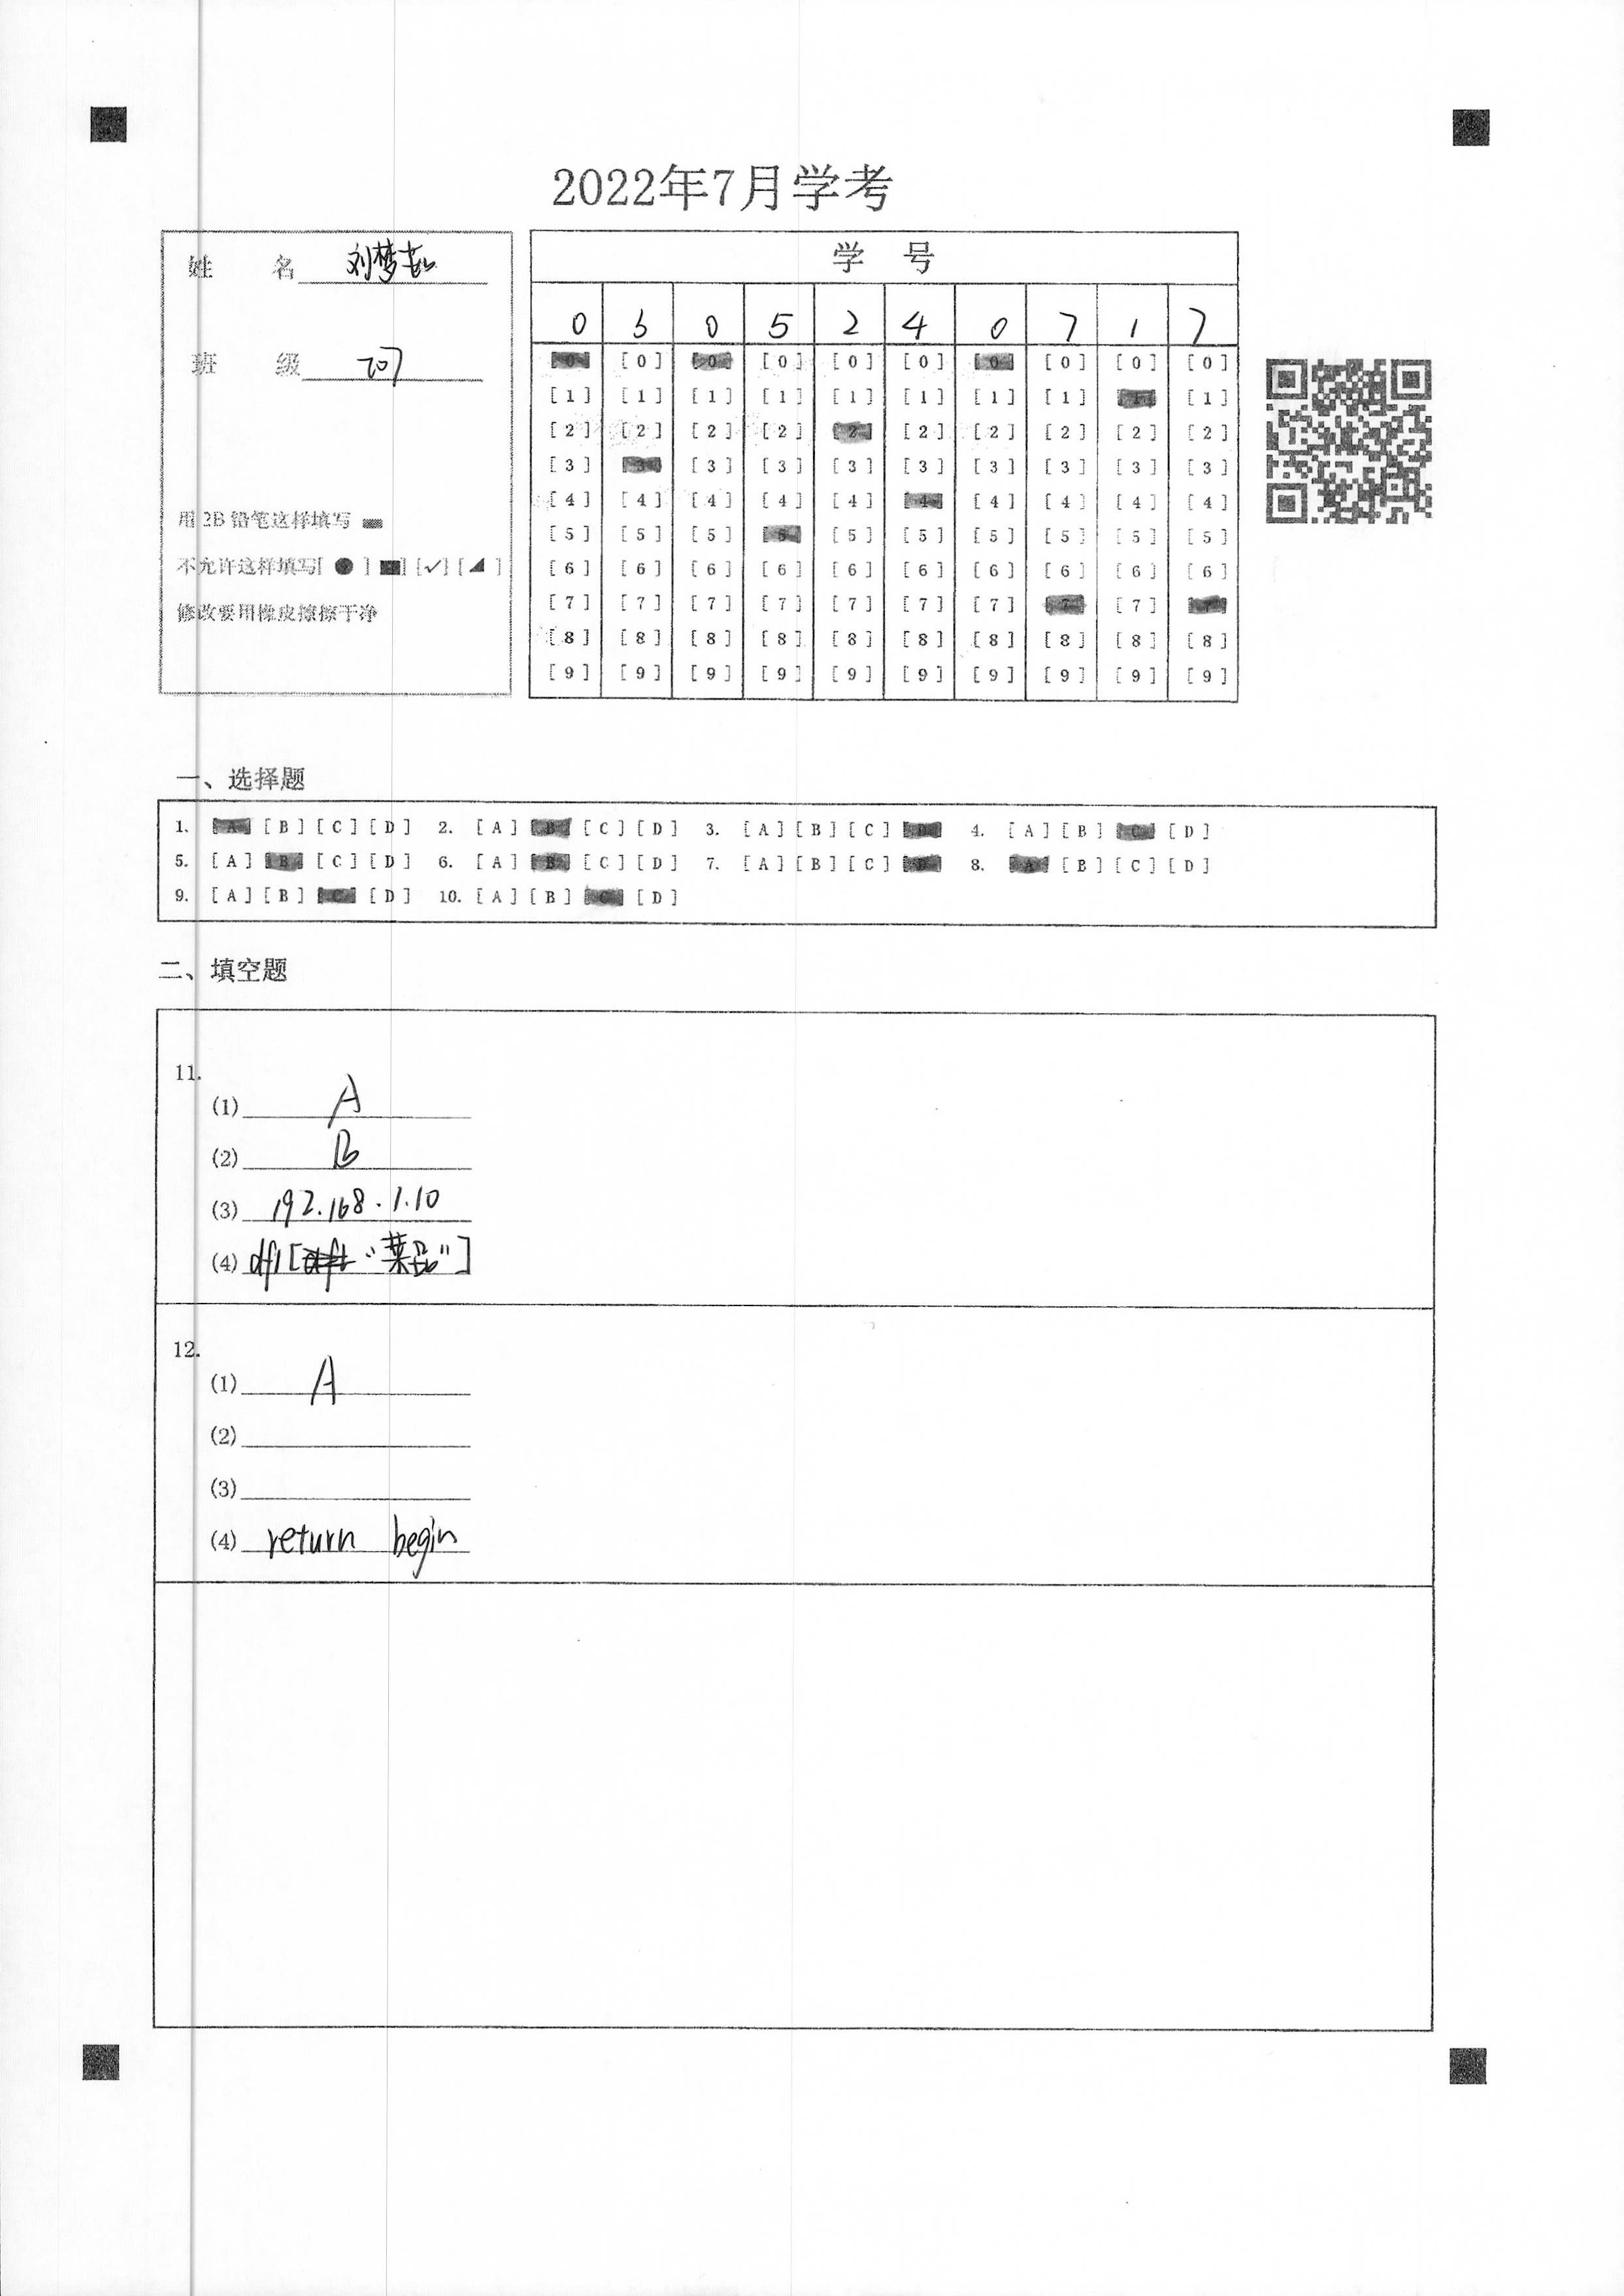 2022年7月学考
姓 名 刘梦茹
班 级 707
用2B铅笔这样填写
不允许这样填写[ ● ] [■] [✓] [◢ ]
修改要用橡皮擦擦干净
学 号
0 3 0 5 2 4 0 7 1 7
[0] [0] [0] [0] [0] [0] [0] [0] [0] [0]
[1] [1] [1] [1] [1] [1] [1] [1] [1] [1]
[2] [2] [2] [2] [2] [2] [2] [2] [2] [2]
[3] [3] [3] [3] [3] [3] [3] [3] [3] [3]
[4] [4] [4] [4] [4] [4] [4] [4] [4] [4]
[5] [5] [5] [5] [5] [5] [5] [5] [5] [5]
[6] [6] [6] [6] [6] [6] [6] [6] [6] [6]
[7] [7] [7] [7] [7] [7] [7] [7] [7] [7]
[8] [8] [8] [8] [8] [8] [8] [8] [8] [8]
[9] [9] [9] [9] [9] [9] [9] [9] [9] [9]
一、选择题
1. [A] [B] [C] [D] 2. [A] [B] [C] [D] 3. [A] [B] [C] [D] 4. [A] [B] [C] [D]
5. [A] [B] [C] [D] 6. [A] [B] [C] [D] 7. [A] [B] [C] [D] 8. [A] [B] [C] [D]
9. [A] [B] [C] [D] 10. [A] [B] [C] [D]
二、填空题
11.
(1) A
(2) B
(3) 192.168.1.10
(4) df1["菜品"]
12.
(1) A
(2)
(3)
(4) return begin